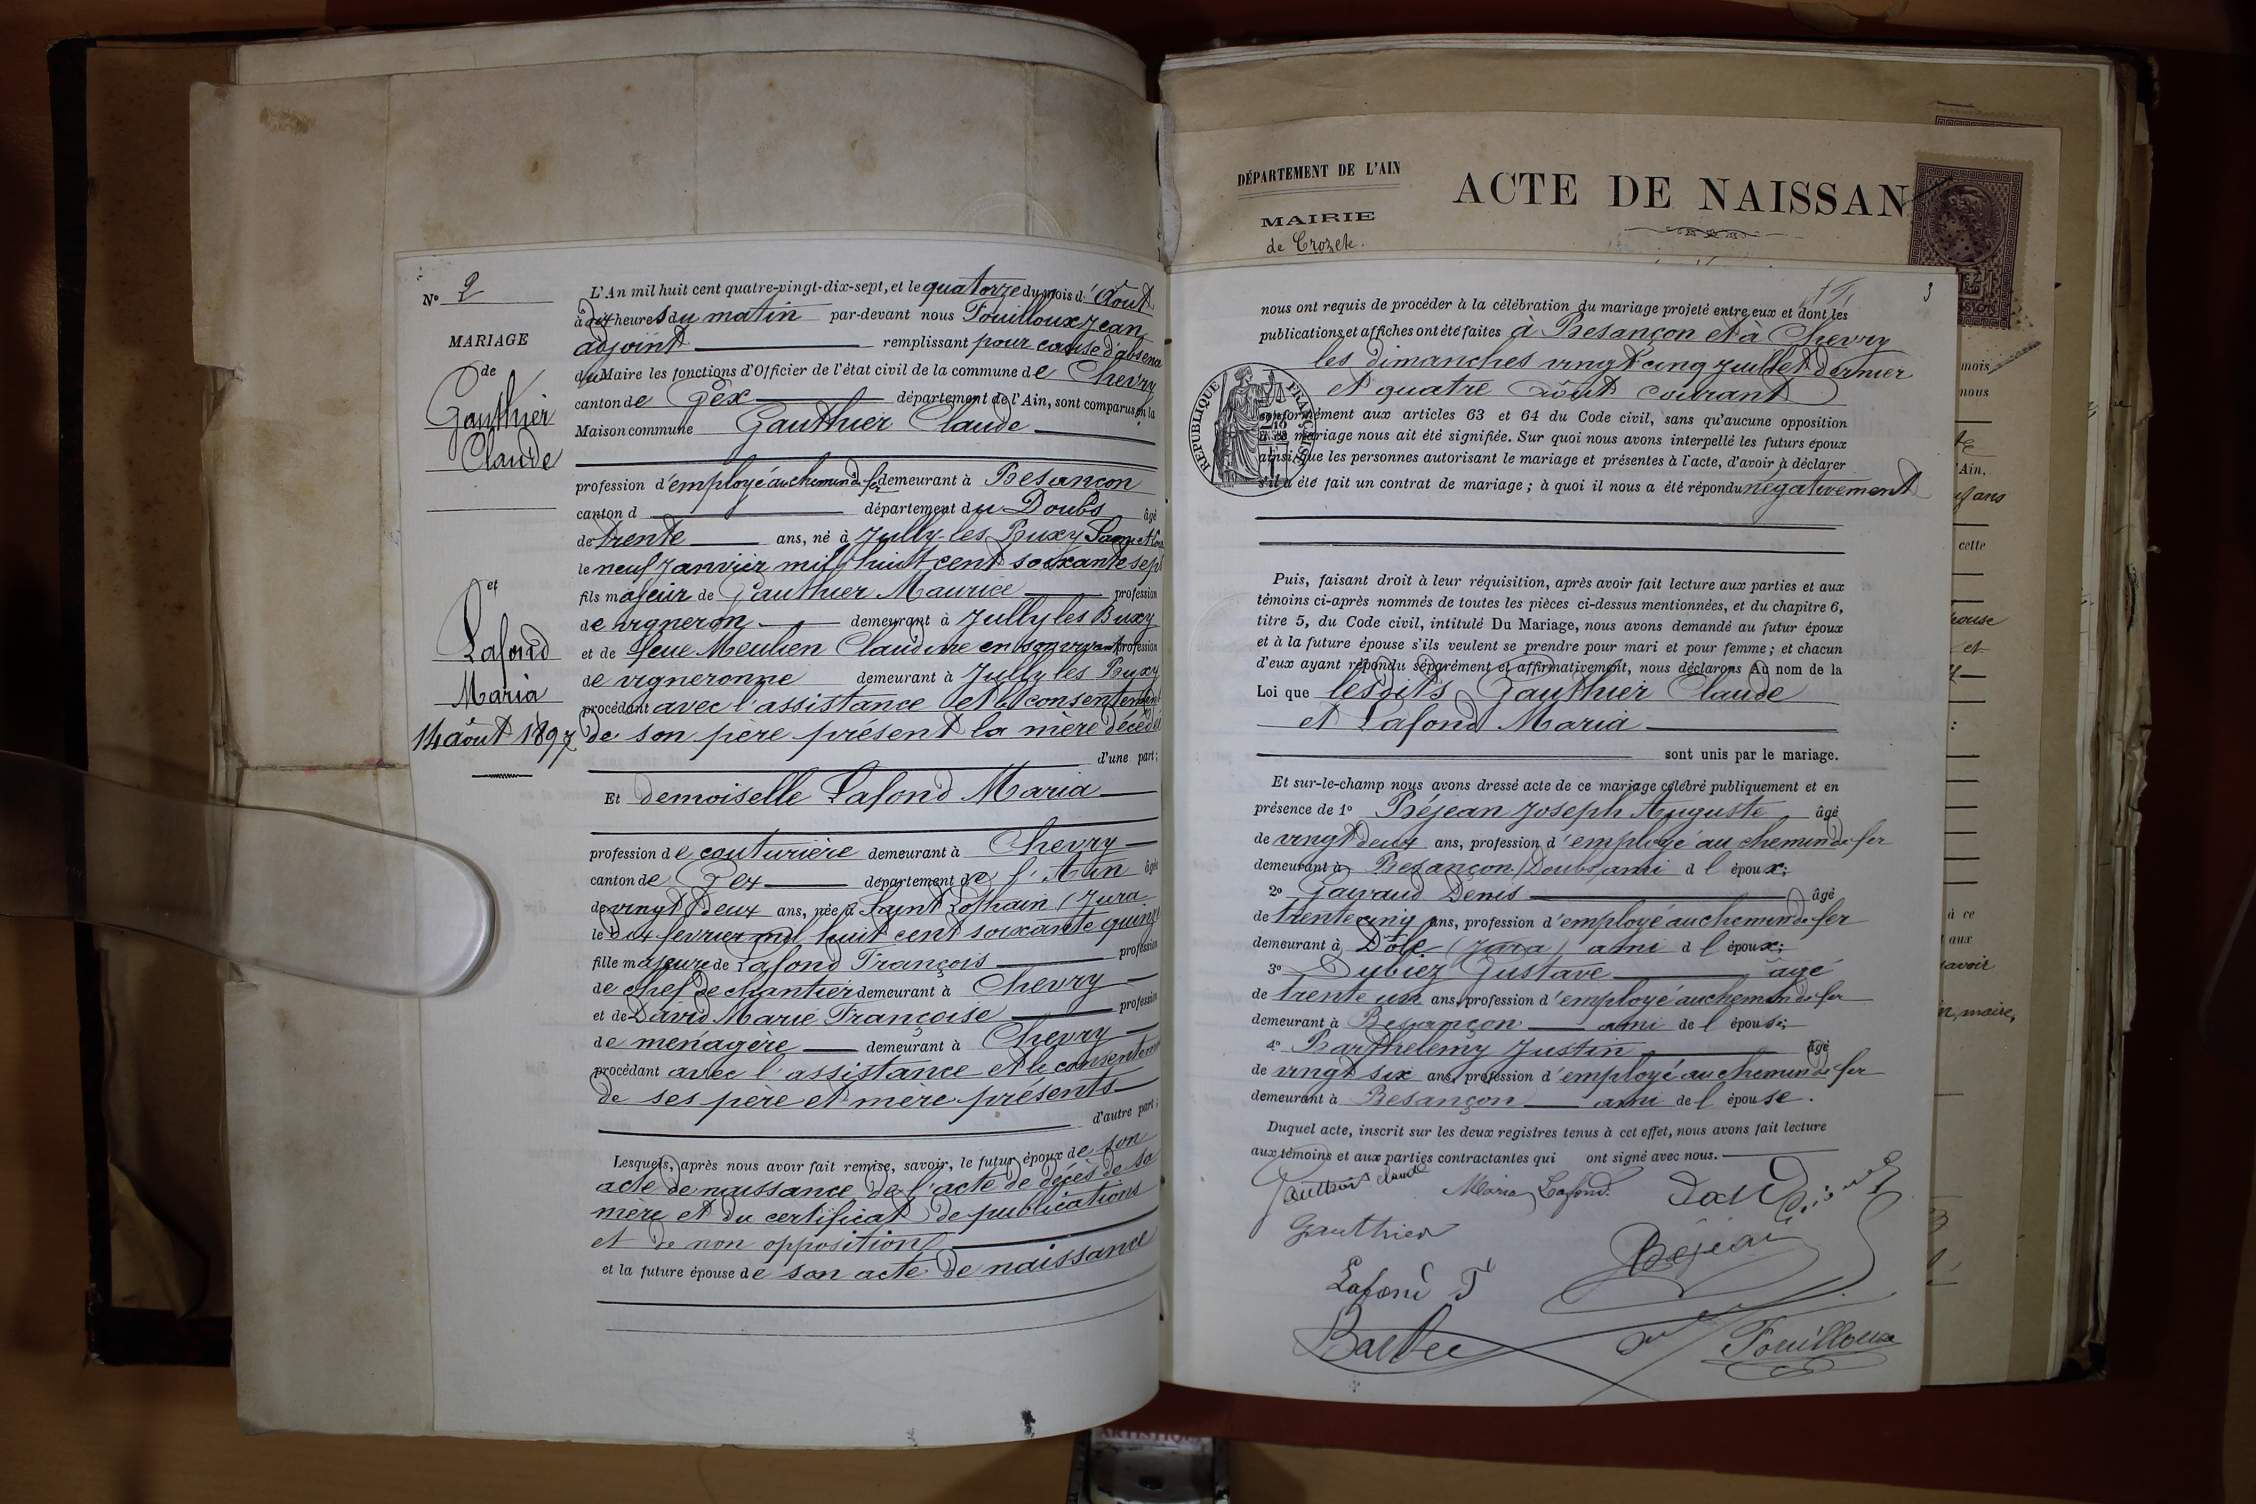 N° 2
MARIAGE
de
Gauthier
Claude
et
Lafond
Maria
14 août 1897
L'An mil huit cent quatre-vingt-dix-sept, et le quatorze du mois d'Août
à dix heures du matin par-devant nous Fouilloux Jean
adjoint remplissant pour cause d'absence
du Maire les fonctions d'Officier de l'état civil de la commune de Chevry
canton de Gex département de l'Ain, sont comparus en la
Maison commune Gauthier Claude
profession d'employé au chemin de fer demeurant à Besançon
canton d département du Doubs âgé
de trente ans, né à Jully-les Buxy Saone et Loire
le neuf Janvier mil huit cent soixante sept
fils majeur de Gauthier Maurice profession
de vigneron demeurant à Jully les Buxy
et de feue Meulien Claudine en son vivant profession
de vigneronne demeurant à Jully les Buxy
procédant avec l'assistance et le consentement
de son père présent la mère décédée
d'une part;
Et demoiselle Lafond Maria
profession de couturière demeurant à Chevry
canton de Gex département de l'Ain âgée
de vingt deux ans, née à Saint Lothain (Jura
le dix fevrier mil huit cent soixante quinze
fille majeure de Lafond François profession
de chef de chantier demeurant à Chevry
et de David Marie Françoise profession
de ménagère demeurant à Chevry
procédant avec l'assistance et le consentement
de ses père et mère présents
d'autre part;
Lesquels, après nous avoir fait remise, savoir, le futur époux de son
acte de naissance de l'acte de décès de sa
mère et du certificat de publications
et de non opposition
et la future épouse de son acte de naissance
DÉPARTEMENT DE L'AIN
ACTE DE NAISSAN
MAIRIE
de Crozet.
3
nous ont requis de procéder à la célébration du mariage projeté entre eux et dont les
publications et affiches ont été faites à Besançon et à Chevry
les dimanches vingt cinq juillet dernier
et quatre Août courant
conformément aux articles 63 et 64 du Code civil, sans qu'aucune opposition
à ce mariage nous ait été signifiée. Sur quoi nous avons interpellé les futurs époux
ainsi que les personnes autorisant le mariage et présentes à l'acte, d'avoir à déclarer
s'il a été fait un contrat de mariage; à quoi il nous a été répondu négativement
RÉPUBLIQUE FRANÇAISE
Puis, faisant droit à leur réquisition, après avoir fait lecture aux parties et aux
témoins ci-après nommés de toutes les pièces ci-dessus mentionnées, et du chapitre 6,
titre 5, du Code civil, intitulé Du Mariage, nous avons demandé au futur époux
et à la future épouse s'ils veulent se prendre pour mari et pour femme; et chacun
d'eux ayant répondu séparément et affirmativement, nous déclarons Au nom de la
Loi que lesdits Gauthier Claude
et Lafond Maria
sont unis par le mariage.
Et sur-le-champ nous avons dressé acte de ce mariage célébré publiquement et en
présence de 1° Béjean Joseph Auguste âgé
de vingt deux ans, profession d'employé au chemin de fer
demeurant à Besançon (Doubs) ami d l époux;
2° Gavaud Denis âgé
de trente cinq ans, profession d'employé au chemin de fer
demeurant à Dôle (Jura) ami d l époux;
3° Dubiez Gustave âgé
de trente un ans, profession d'employé au chemin de fer
demeurant à Besançon ami de l épouse;
4° Barthelemy Justin âgé
de vingt six ans, profession d'employé au chemin de fer
demeurant à Besançon ami de l épouse.
Duquel acte, inscrit sur les deux registres tenus à cet effet, nous avons fait lecture
aux témoins et aux parties contractantes qui ont signé avec nous.
Gauthier Claude
Maria Lafond.
Gauthier
Béjean
Lafond F
Fouilloux
mois
nous
'Ain,
cette
à ce
aux
savoir
maire,